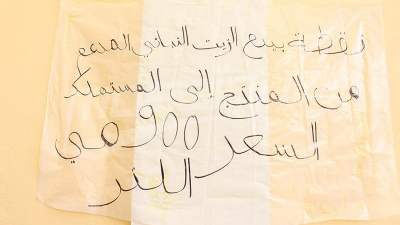 نقطة بيع الزيت النباتي المدعم
من المنتج إلى المستهلك
السعر 900 مي
اللتر